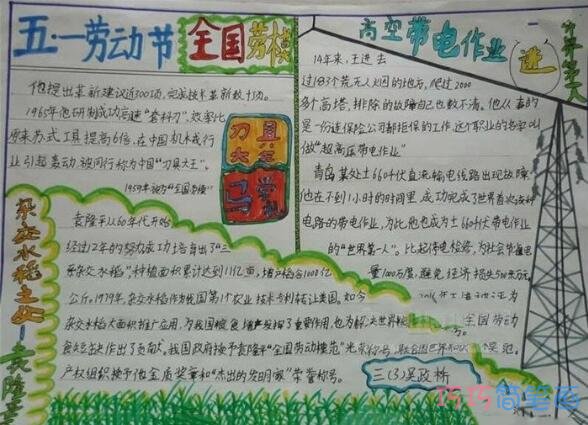 五·一劳动节
全国劳模
高空带电作业
进
他提出革新建议近300项,完成技术革新数十项。
1965年他研制成功高速"套料刀",效率比
原来苏式工具提高6倍,在中国机械行
业引起轰动,被同行称为中国"刀具大王"。
1959年被为"全国劳模"
刀具
大王
马学
14年来,王进去
过183个荒无人烟的地方,爬过2000
多个高塔,排除的故障自己也数不清。他从事的
是一份连保险公司都拒保的工作,这个职业的名字叫
做"超高压带电作业"
青岛某处±660千伏直流输电线路出现故障
他在不到1小时的时间里,成功完成了世界首次该种
电路的带电作业,为此他也成为±660千伏带电作业
的"世界第一人"。比起停电检修,为社会节省电
量1000万度,避免经济损失500余万元。
杂交水稻之父-袁隆平
袁隆平从60年代开始
经过12年的努力成功培育出了"三
系杂交水稻",种植面积累达到11亿亩,增产稻谷1000亿
公斤。1979年,杂交水稻作为我国第1个农业技术专利转让美国。如今
杂交水稻大面积推广应用,为我国粮食增产发挥了重要作用,也为解决世界粮
食短缺作出了贡献。我国政府授予袁隆平"全国劳动模范"光荣称号,联合国世界知
产权组织授予他金质奖章和"杰出的发明家"荣誉称号。
全国劳动
三(3)吴政桥
巧巧简笔画